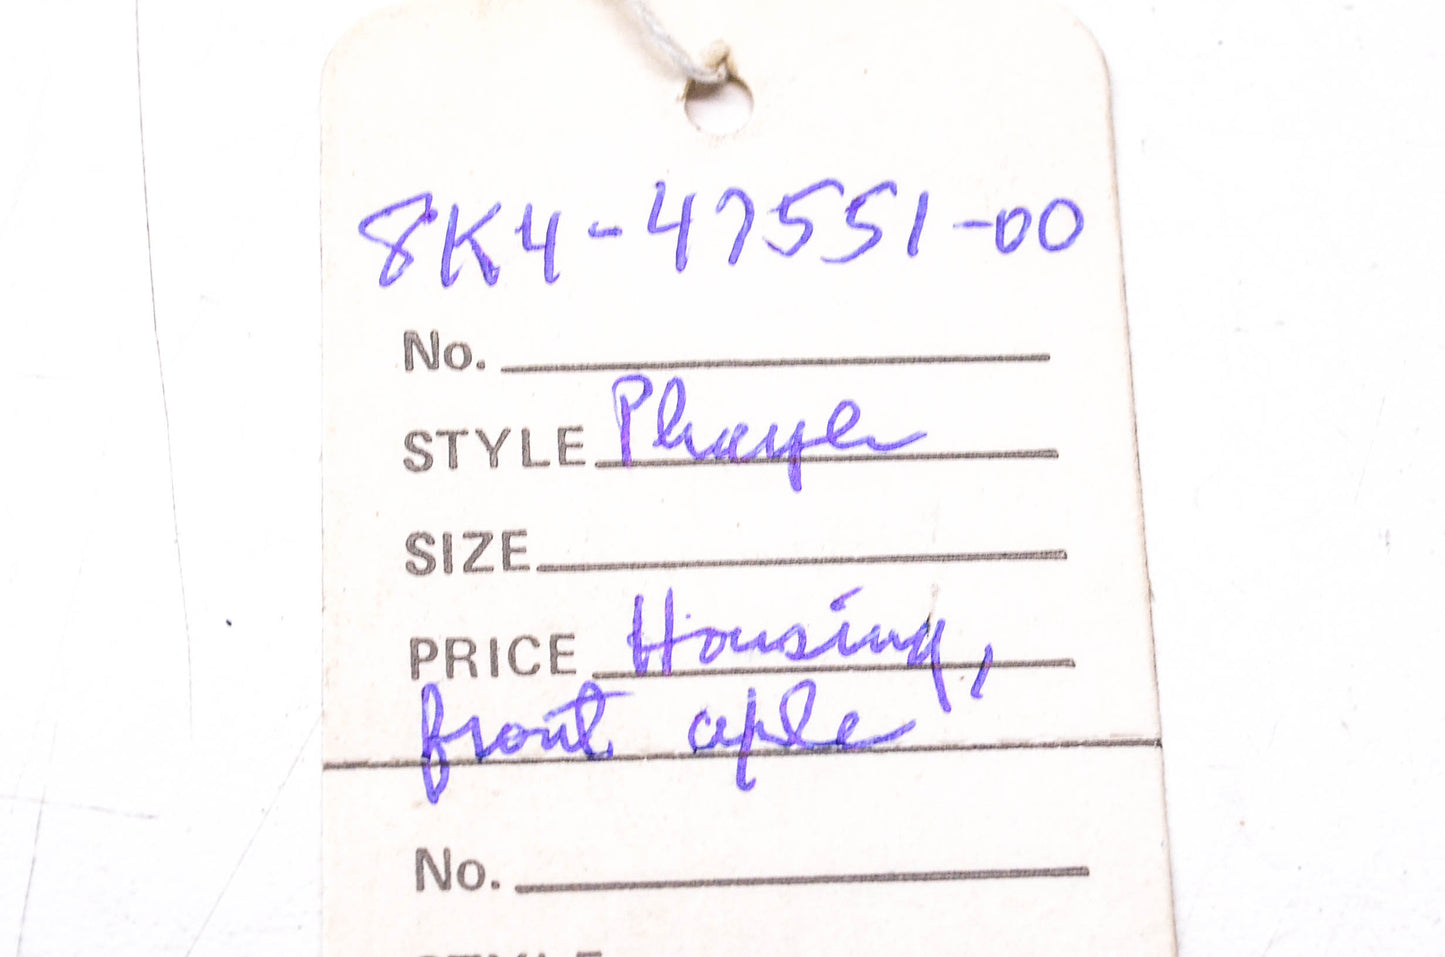 8K4-47551-00
No.
STYLE Phayle
SIZE
PRICE Housing,
front aple
No.
STYLE